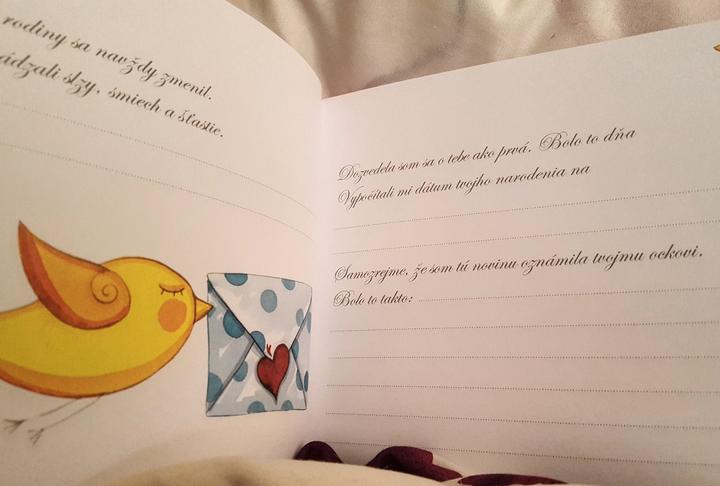 rodiny sa navždy zmenil.
slzy, smiech a šťastie.
Dozvedela som sa o tebe ako prvá. Bolo to dňa
Vypočítali mi dátum tvojho narodenia na
Samozrejme, že som tú novinu oznámila tvojmu ockovi.
Bolo to takto: